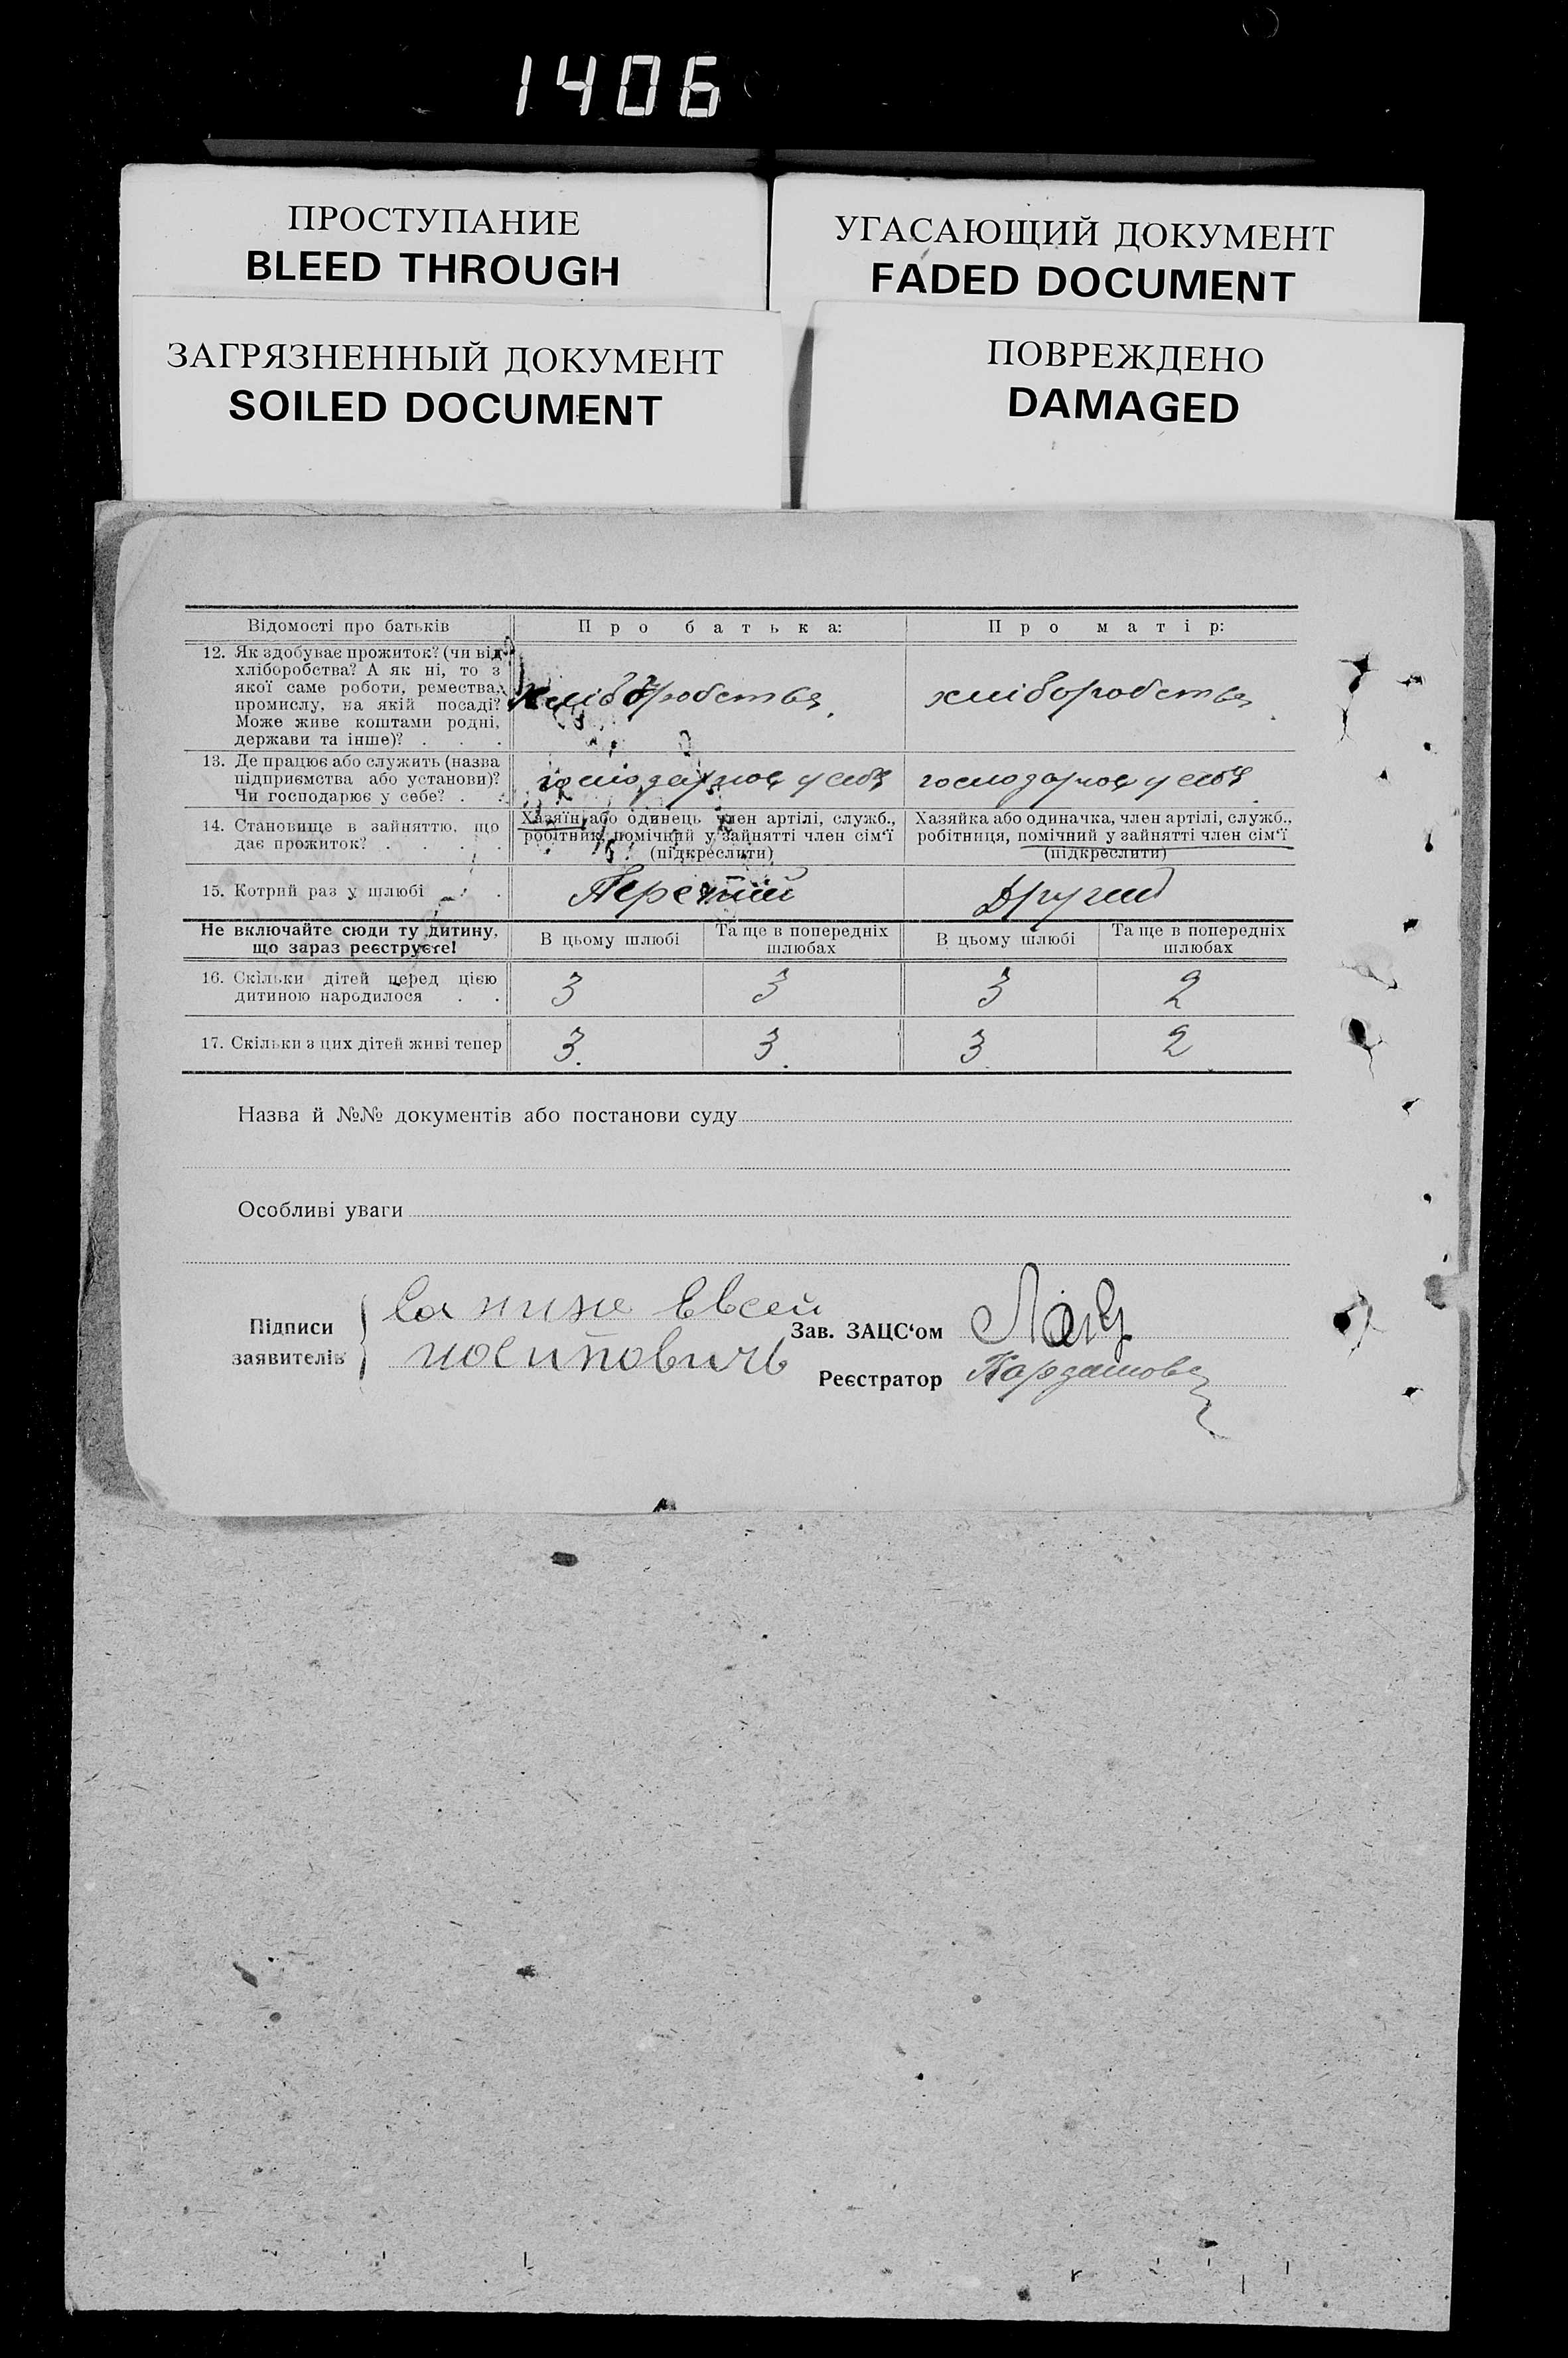 1406
ПРОСТУПАНИЕ
BLEED THROUGH
УГАСАЮЩИЙ ДОКУМЕНТ
FADED DOCUMENT
ЗАГРЯЗНЕННЫЙ ДОКУМЕНТ
SOILED DOCUMENT
ПОВРЕЖДЕНО
DAMAGED
Відомості про батьків
Про батька:
Про матір:
12. Як здобуває прожиток? (чи від
хліборобства? А як ні, то з
якої саме роботи, ремества,
промислу, на якій посаді?
Може живе коштами родні,
держави та інше)? . . .
хліборобства.
хліборобства
13. Де працює або служить (назва
підприємства або установи)?
Чи господарює у себе? . .
господарює у себя
господарює у себя
14. Становище в зайняттю, що
дає прожиток? . . . .
Хазяїн або одинець член артілі, служб.,
робітник, помічний у зайнятті член сім'ї
(підкреслити)
Хазяйка або одиначка, член артілі, служб.,
робітниця, помічний у зайнятті член сім'ї
(підкреслити)
15. Котрий раз у шлюбі . . .
Другий
Не включайте сюди ту дитину,
що зараз реєструєте!
В цьому шлюбі
Та ще в попередніх
шлюбах
В цьому шлюбі
Та ще в попередніх
шлюбах
16. Скільки дітей перед цією
дитиною народилося . .
3
3
3
2
17. Скільки з цих дітей живі тепер
3.
3.
3
2
Назва й №№ документів або постанови суду
Особливі уваги
Підписи
заявителів
Евсей
Иосипович
Зав. ЗАЦС'ом
Реєстратор